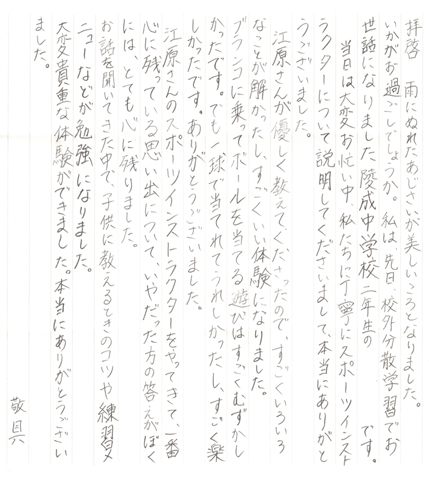 拝啓　雨にぬれたあじさいが美しいころとなりました。
いかがお過ごしでしょうか。私は、先日、校外分散学習でお
世話になりました陵成中学校二年生の　　　　です。
　当日は大変お忙い中、私たちに丁寧にスポーツインスト
ラクターについて説明してくださいまして、本当にありがと
うございました。
　江原さんが優しく教えてくださったので、すごくいろいろ
なっことが解かったし、すごくいい体験になりました。
ブランコに乗ってボールを当てる遊びはすごくむずかし
かったです。でも一球で当てれてうれしかったし、すごく楽
しかったです。ありがとうございました。
　江原さんのスポーツインストラクターをやってきて、一番
心に残っている思い出について、いやだった方の答えがぼく
には、とても心に残りました。
お話を聞いてきた中で、子供に教えるときのコツや練習メ
ニューなどが勉強になりました。
大変貴重な体験ができました。本当にありがとうござい
ました。
敬具